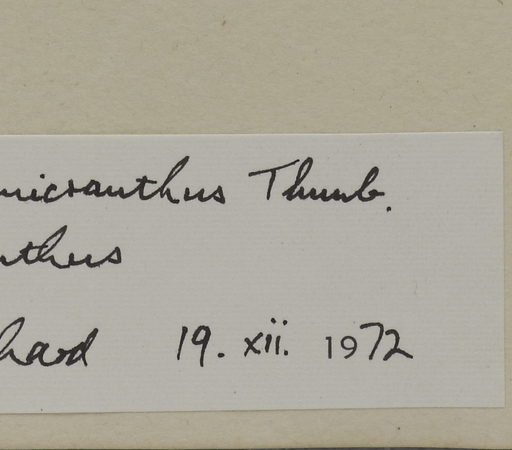 micranthus Thunb.
nthus
hard 19. xii. 1972